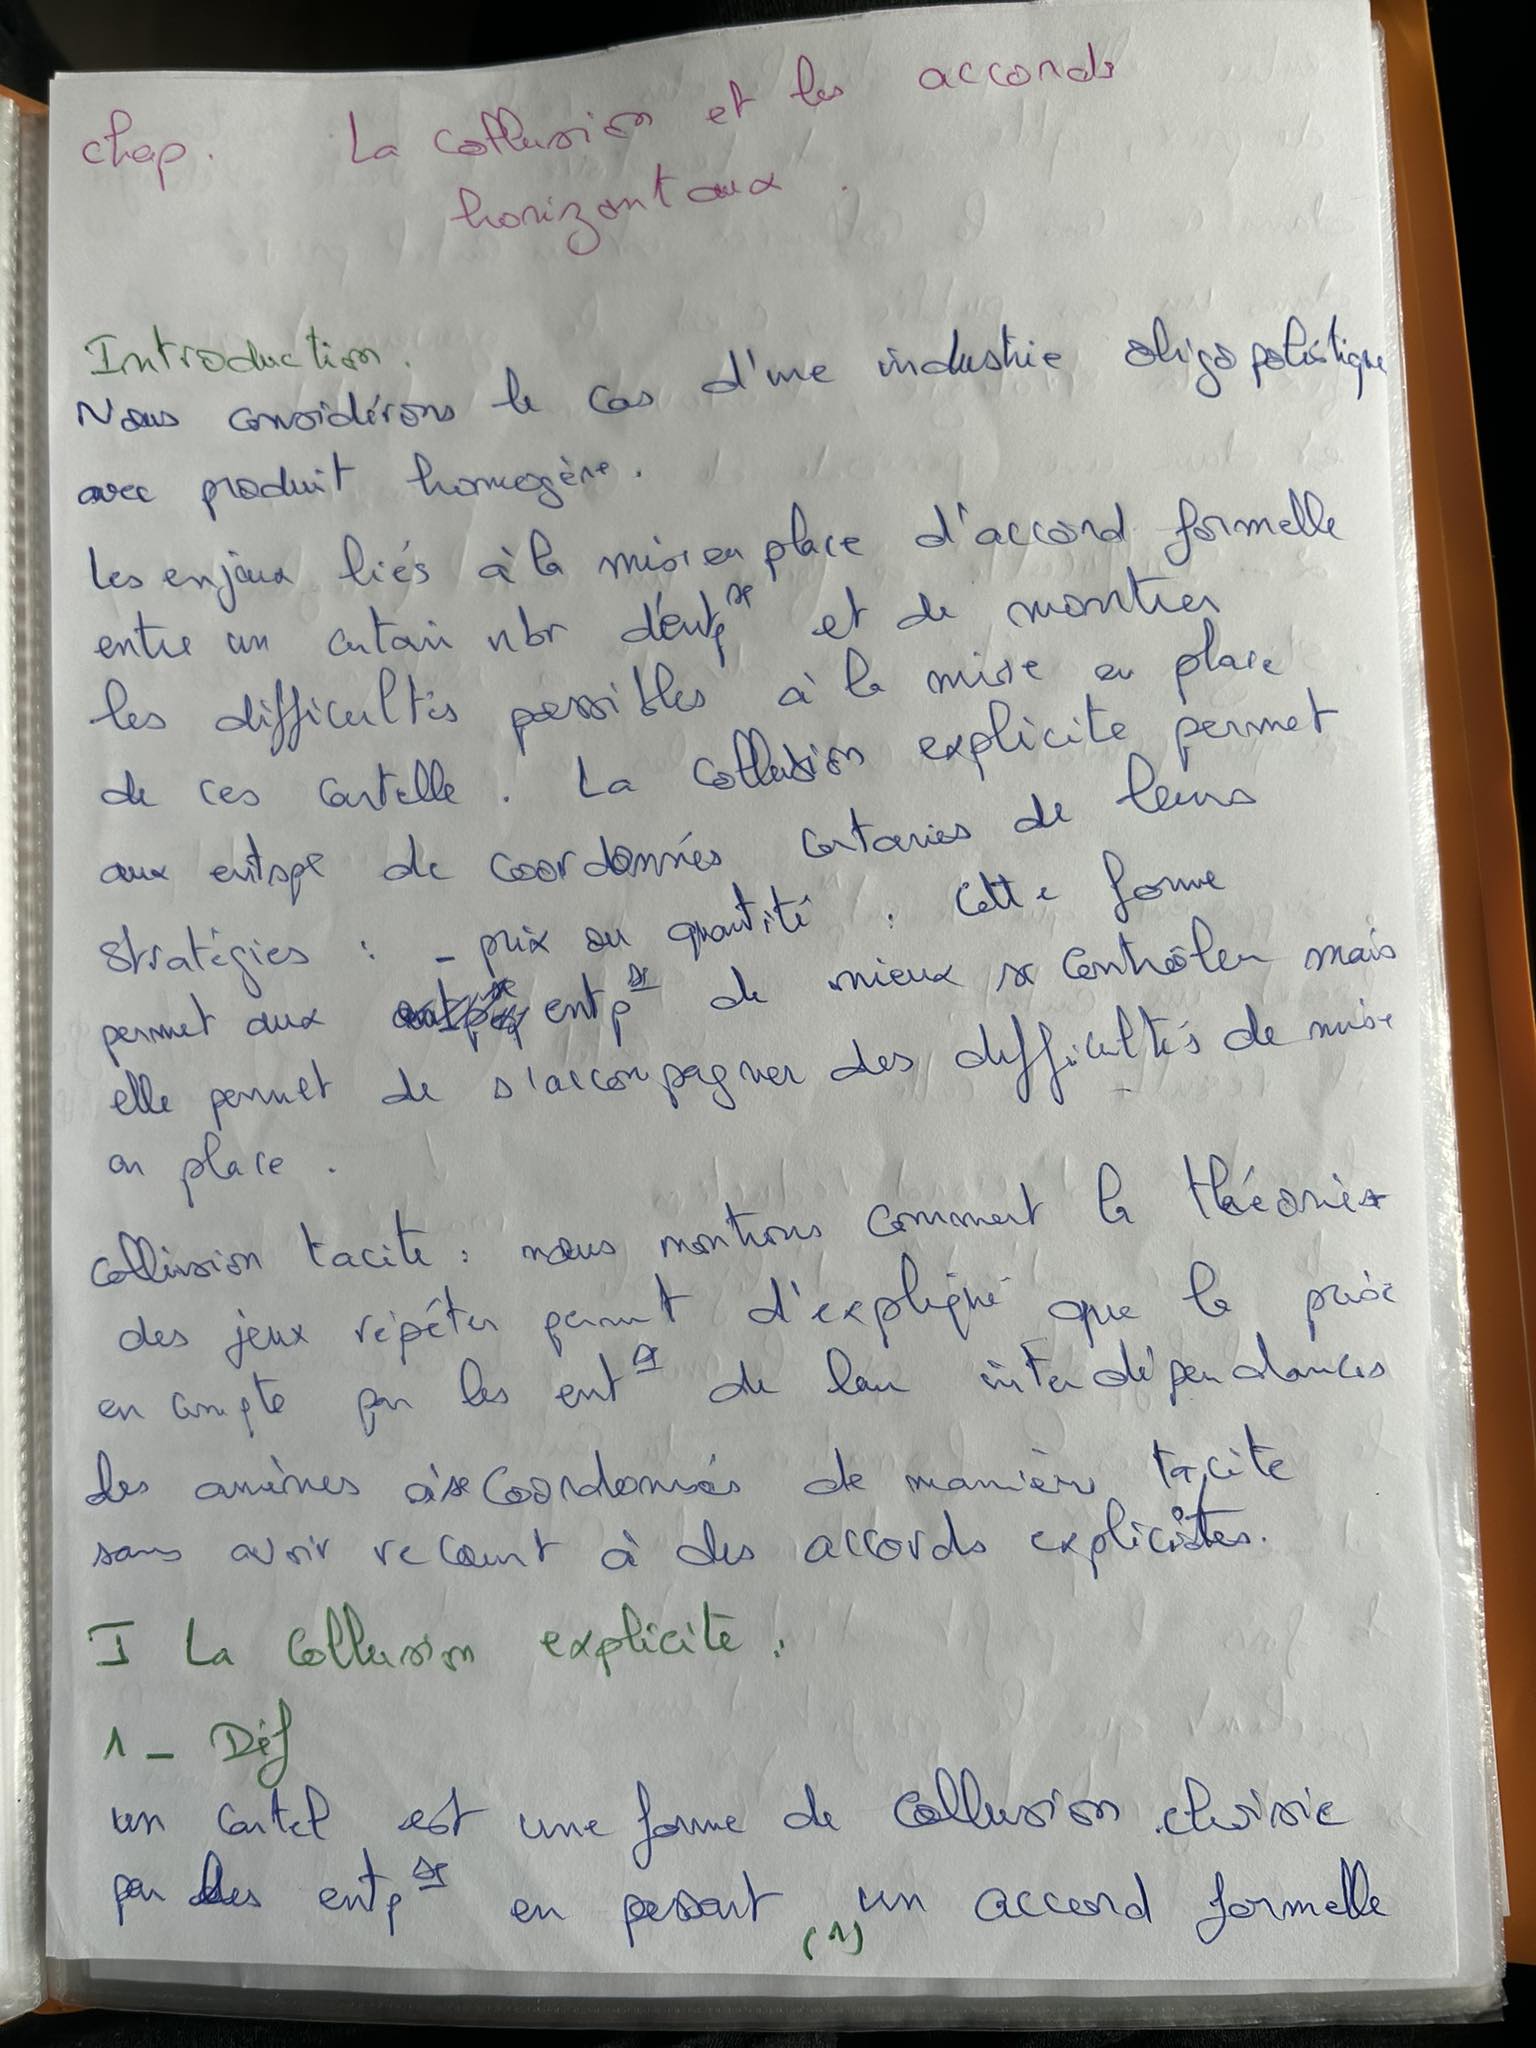 chap. La collusion et les accords
horizontaux.
Introduction.
Nous considérons le cas d'une industrie oligopolistique
avec produit homogène.
les enjeux liés à la mise en place d'accord formelle
entre un certain nbr d'entp se et de montrer
les difficultés possibles à la mise en place
de ces cartelle. La collusion explicite permet
aux entspse de coordonnés certaines de leurs
stratégies : - prix ou quantité : cette forme
permet aux entp se de mieux se contrôler mais
elle permet de s'accompagner des difficultés de mise
en place.
collusion tacite : nous montrons comment la théorie
des jeux répéter permet d'expliqué que la prise
en compte par les ent se de leur interdépendances
les amènes à se coordonnés de manière tacite
sans avoir recourt à des accords explicites.
I La collusion explicite.
1 - Déf
un cartel est une forme de collusion choisie
par les entp se en passant un accord formelle
(1)